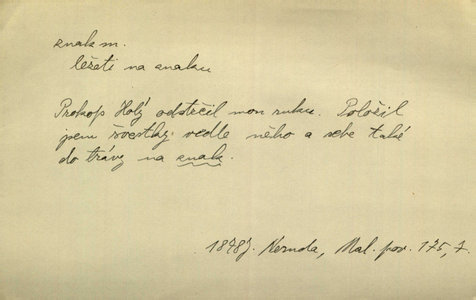 znak m.
ležeti na znaku
Prokop Holý odstrčil mou ruku. Položil
jsem švestky vedle něho a sebe také
do trávy na znak.
1878 J. Neruda, Mal. pov. 175, 7.